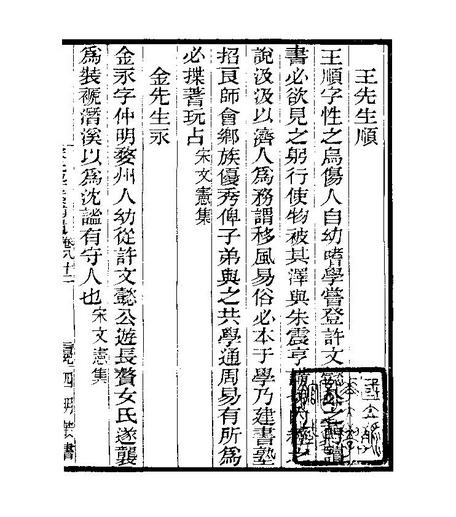 王先生順
王順字性之烏傷人自幼嗜學嘗登許文之門讀
書必欲見之躬行使物被其澤與朱震亨之
說汲汲以濟人爲務謂移風易俗必本于學乃建書塾
招良師會鄉族優秀俾子弟與之共學通周易有所爲
必揲蓍玩占宋文憲集
金先生永
金永字仲明婺州人幼從許文懿公遊長贅女氏遂襲
爲裝褫潛溪以爲沈謐有守人也宋文憲集
卷八十二
四明叢書